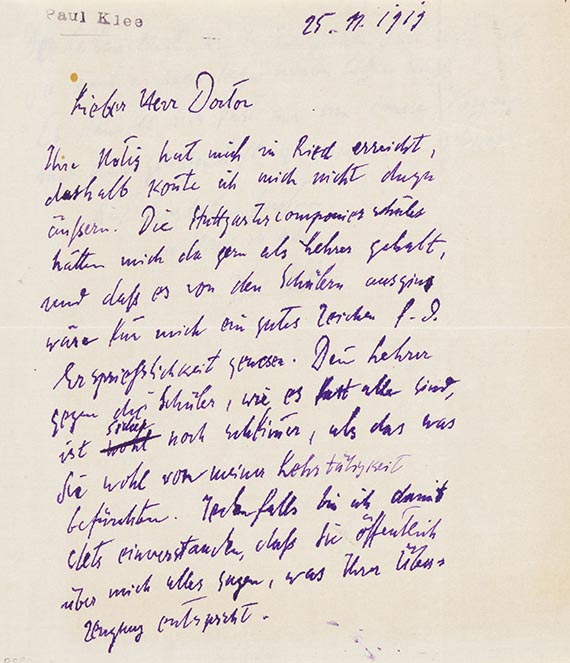 Paul Klee
25. 11. 1919
Lieber Herr Doctor
Ihre Notiz hat mich in Ried erreicht,
deshalb konte ich mich nicht dazu
äußern. Die Stuttgarter schüler
hätten mich da gern als Lehrer gehabt,
und daß es von den Schülern ausging
wäre für mich ein gutes Zeichen f. d.
Ersprießlichkeit gewesen. Denn Lehrer
gegen die Schüler, wie es fast alle sind,
ist sicher noch schlimer, als das was
Sie wohl von meiner Lehrtätigkeit
befürchten. Jedenfalls bin ich damit
stets einverstanden, daß Sie öffentlich
über mich alles sagen, was Ihrer Über=
zeugung entspricht.